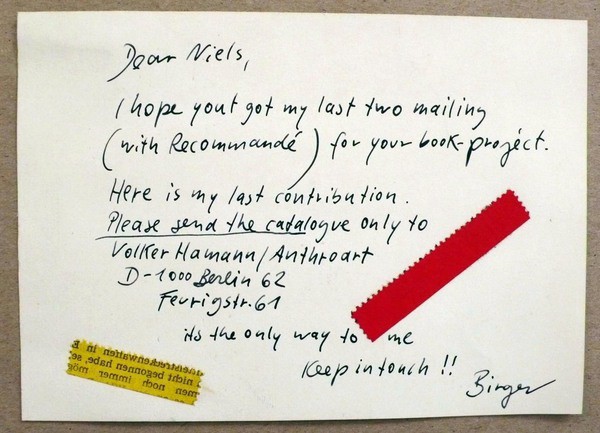 Dear Niels,
I hope yout got my last two mailing
(with Recommandé) for your book-project.
Here is my last contribution.
Please send the catalogue only to
Volker Hamann/Anthroart
D-1000 Berlin 62
Feurigstr. 61
its the only way to me
Keep in touch !!
Birger
nicht begonnen habe, se
men noch immer mög